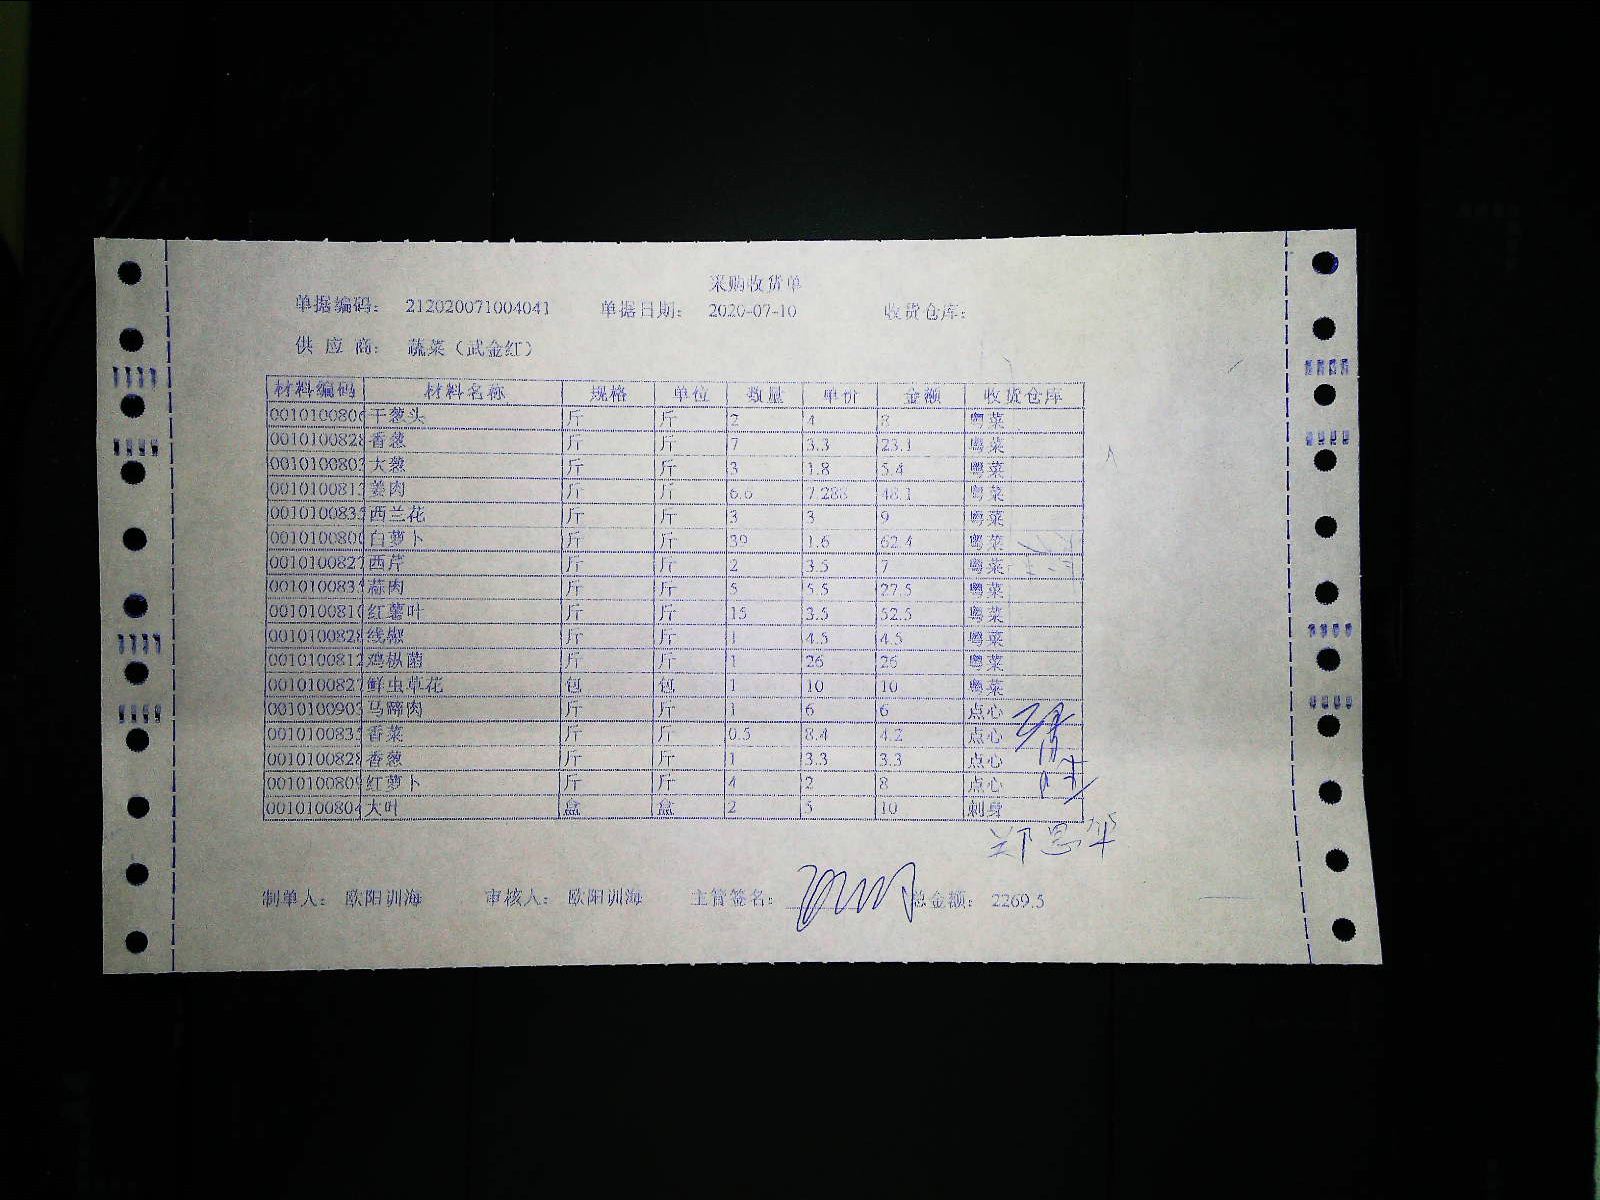 采购收货单
单据编码： 212020071004041 单据日期： 2020-07-10 收货仓库：
供 应 商： 蔬菜（武金红）
材料编码 材料名称 规格 单位 数量 单价 金额 收货仓库
0010100806 干葱头 斤 斤 2 4 8 粤菜
0010100828 香葱 斤 斤 7 3.3 23.1 粤菜
0010100803 大葱 斤 斤 3 1.8 5.4 粤菜
0010100813 姜肉 斤 斤 6.6 7.288 48.1 粤菜
0010100835 西兰花 斤 斤 3 3 9 粤菜
0010100800 白萝卜 斤 斤 39 1.6 62.4 粤菜
0010100827 西芹 斤 斤 2 3.5 7 粤菜
0010100835 蒜肉 斤 斤 5 5.5 27.5 粤菜
0010100810 红薯叶 斤 斤 15 3.5 52.5 粤菜
0010100828 线椒 斤 斤 1 4.5 4.5 粤菜
0010100812 鸡枞菌 斤 斤 1 26 26 粤菜
0010100827 鲜虫草花 包 包 1 10 10 粤菜
0010100903 马蹄肉 斤 斤 1 6 6 点心
0010100835 香菜 斤 斤 0.5 8.4 4.2 点心
0010100828 香葱 斤 斤 1 3.3 3.3 点心
0010100809 红萝卜 斤 斤 4 2 8 点心
0010100804 大叶 盒 盒 2 5 10 刺身
郑思华
制单人： 欧阳训海 审核人： 欧阳训海 主管签名： 总金额： 2269.5